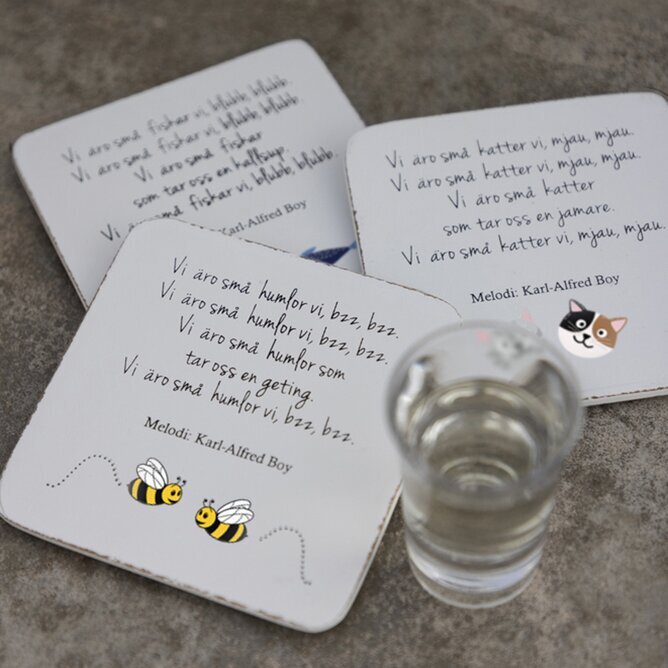 Vi äro små fiskar vi, blubb, blubb.
Vi äro små fiskar vi, blubb, blubb.
Vi äro små fiskar
som tar oss en hallsup.
små fiskar vi, blubb, blubb.
Karl-Alfred Boy
Vi äro små katter vi, mjau, mjau.
Vi äro små katter vi, mjau, mjau.
Vi äro små katter
som tar oss en jamare.
Vi äro små katter vi, mjau, mjau.
Melodi: Karl-Alfred Boy
Vi äro små humlor vi, bzz, bzz.
Vi äro små humlor vi, bzz, bzz.
Vi äro små humlor som
tar oss en geting.
Vi äro små humlor vi, bzz, bzz.
Melodi: Karl-Alfred Boy